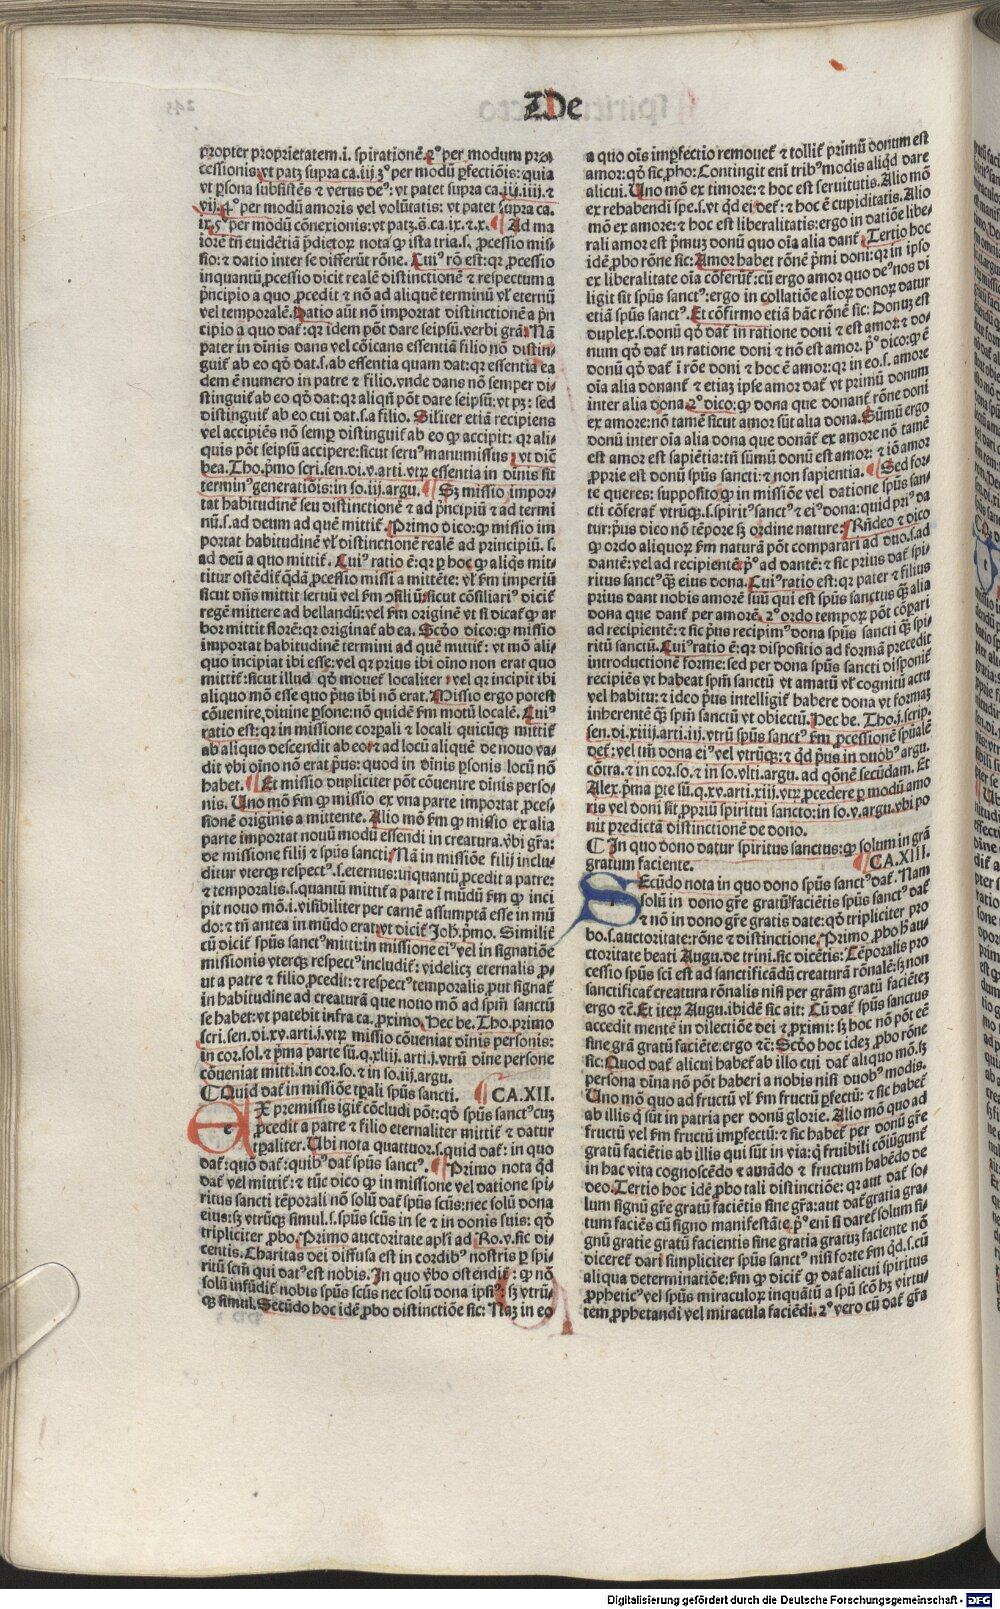 De
propter proprietatem.i. spirationē.2º per modum pro-
cessionis: vt patꝫ supra ca.iij.3º per modū ꝑfectiōis: quia
vt ꝑsona subsistēs & verus deꝰ: vt patet supra ca.iij.iiij.&
vij.4º per modū amoris vel volūtatis: vt patet supra ca.
ix.5º per modū cōnexionis: vt patꝫ.s̄.ca.ix.&.x. Ad ma
iorē tñ euidētiā p̄dictoꝝ nota ꝙ ista tria.s. ꝓcessio mis-
sio: & datio inter se differūt rōne. Cuiꝰ rō est: qꝛ ꝓcessio
inquantū ꝓcessio dicit realē distinctionē & respectum a
p̄ncipio a quo ꝓcedit & nō ad aliquē terminū vł eternū
vel temporalē. Datio aūt nō importat distinctionē a p̄n
cipio a quo dat̄: qꝛ idem pōt dare seipsū. verbi grā. Nā
pater in diuinis dans vel cōicans essentiā filio nō distin-
guit̄ ab eo qd̄ dat.s. ab essentia quam dat: qꝛ essentia ea
dem ē numero in patre & filio. vnde dans nō semper di-
stinguit̄ ab eo qd̄ dat: qꝛ aliqñ pōt dare seipsū: vt pꝫ: sed
distinguit̄ ab eo cui dat.s. a filio. Siliter etiā recipiens
vel accipiēs nō semꝑ distinguit̄ ab eo ꝙ accipit: qꝛ ali-
quis pōt seipsū accipere: sicut seruꝰ manumissus: vt dic̄
bea. Tho. p̄mo scri. sen. di. v. arti. vtꝝ essentia in diuis sit
terminꝰ generatiōis: in so. iij. argu. Sꝫ missio impor-
tat habitudinē seu distinctionē & ad p̄ncipiū & ad termi
nū.s. ad deum ad quē mittit̄. Primo dico: ꝙ missio im
portat habitudinē vł distinctionē realē ad principiū.s.
ad deū a quo mittit̄. Cuiꝰ ratio ē: qꝛ per hoc ꝙ aliqs mit-
titur ostēdit̄ qdā ꝓcessio missi a mittēte: vł fm imperiū
sicut dñs mittit seruū vel fm ꝯsiliū: sicut cōsiliariꝰ dicit̄
regē mittere ad bellandū: vel fm originē vt si dicat̄ ꝙ ar
bor mittit florē: qꝛ originat̄ ab ea. Scdo dico: ꝙ missio
importat habitudinē termini ad quē mittit̄: vt mō ali-
quo incipiat ibi esse: vel qꝛ prius ibi oīno non erat quo
mittit̄: sicut illud qd̄ mouet̄ localiter: vel qꝛ incipit ibi
aliquo mō esse quo p̄us ibi nō erat. Missio ergo potest
cōuenire diuine ꝑsone: nō quidē fm motū localē. Cuiꝰ
ratio est: qꝛ in missione corꝑali & locali quicūqꝫ mittit̄
ab aliquo descendit ab eo: & ad locū aliquē de nouo va-
dit vbi oīno nō erat p̄us: quod in diuinis ꝑsonis locū nō
habet. Et missio dupliciter pōt cōuenire diuinis perso-
nis. Uno mō fm ꝙ missio ex vna parte importat ꝓces-
sionē originis a mittente. Alio mō fm ꝙ missio ex alia
parte importat nouū modū essendi in creatura. vbi gr̄a:
de missione filij & spūs sancti. Nā in missiōe filij inclu-
ditur vterqꝫ respectꝰ.s. eternus: inquantū ꝓcedit a patre:
& temporalis.s. quantū mittit̄ a patre ī mūdū fm ꝙ inci
pit nouo mō.i. visibiliter per carnē assumptā esse in mū
do: & tñ antea in mūdo erat: vt dicit̄ Joh. p̄mo. Similit̄
cū dicit̄ spūs sanctꝰ mitti: in missione eiꝰ vel in signatiōe
missionis vterqꝫ respectꝰ includit̄: videlicꝫ eternalis ꝓ-
ut a patre & filio ꝓcedit: & respectꝰ temporalis ꝓut signat̄
in habitudine ad creaturā que nouo mō ad spm sanctū
se habet: vt patebit infra ca. proximo. Hec be. Tho. primo
scri. sen. di. xv. arti. j. vtꝝ missio cōueniat diuinis personis:
in cor. sol. & p̄ma parte sū. q. xliij. arti. j. vtrū diuine persone
cōueniat mitti. in cor. so. & in so. iij. argu.
Quid dat̄ in missiōe tꝑali spūs sancti. CA.XII.
EX premissis igit̄ cōcludi pōt: qd̄ spūs sanctꝰ cuꝫ
ꝓcedit a patre & filio eternaliter mittit̄ & datur
tꝑaliter. Ubi nota quattuor.s. quid dat̄: in quo
dat̄: quō dat̄: quibꝰ dat̄ spūs sanctꝰ. Primo nota qd
dat̄ vel mittit̄: & tūc dico ꝙ in missione vel datione spi-
ritus sancti tēporali nō solū dat̄ spūs sctūs: nec solū dona
eius: sꝫ vtrūqꝫ simul.s. spūs sctūs in se & in donis suis: qd̄
tripliciter ꝓbo. Primo auctoritate apłi ad Ro. v. sic di-
centis. Charitas dei diffusa est in cordibꝰ nostris ꝑ spi-
ritū sctm qui datꝰ est nobis. In quo vbo ostendit̄: ꝙ nō
solū infudit̄ nobis spūs sctūs nec solū dona ipsiꝰ: sꝫ vtrū-
qꝫ simul. Secūdo hoc idē ꝓbo distinctiōe sic: Naꝫ in eo
a quo oīs imꝑfectio remouet̄ & tollit̄ prīmū donum est
amor: qd̄ sic ꝓho: Contingit enī tribꝰ modis aliqd dare
alicui. Uno mō ex timore: & hoc est seruitutis. Alio mō
ex rehabendi spe.s. vt qd ei det̄: & hoc ē cupiditatis. Alio
mō ex amore: & hoc est liberalitatis: ergo in datiōe libe-
rali amor est p̄muꝫ donū quo oīa alia dant̄. Tertio hoc
idē ꝓbo rōne sic: Amor habet rōnē p̄mi doni: qꝛ in ipso
ex liberalitate oīa cōferūt̄: cū ergo amor quo deꝰ nos di
ligit sit spūs sanctꝰ: ergo in collatiōe alioꝝ donoꝝ datur
etiā spūs sanctꝰ. Et cōfirmo etiā hāc rōnē sic: Donuꝫ est
duplex.s. donū qd̄ dat̄ in ratione doni & est amor: & do-
num qd̄ dat̄ in ratione doni & nō est amor. p̄º dico: ꝙ ē
donū qd̄ dat̄ ī rōe doni & hoc ē amor: qꝛ in eo.s. amore
oīa alia donant̄ & etiaꝫ ipse amor dat̄ vt primū donum
inter alia dona. 2º dico: ꝙ dona que donant̄ rōne doni
ex amore: nō tamē sicut amor sūt alia dona. Sūmū ergo
donū inter oīa alia dona que donāt̄ ex amore nō tamē
est amor est sapiētia: tñ sūmū donū est amor: & iō amor
ꝓprie est donū spūs sancti: & non sapientia. Sed for-
te queres: supposito ꝙ in missiōe vel datione spūs san-
cti cōferat̄ vtrūqꝫ.s. spiritꝰ sanctꝰ & eiꝰ dona: quid priꝰ da
tur: p̄us dico nō tēpore sꝫ ordine nature: Rñdeo & dico
ꝙ ordo aliquoꝝ fm naturā pōt comparari ad duo.s. ad
dantē: vel ad recipientē: p̄º ad dantē: & sic prius dat̄ spi-
ritus sanctꝰ qꝫ eius dona. Cuiꝰ ratio est: qꝛ pater & filius
prius dant nobis amorē suū qui est spūs sanctus qꝫ alia
dona que dant̄ per amorē. 2º ordo tempoꝝ pōt cōpari
ad recipientē: & sic p̄us recipimꝰ dona spūs sancti qꝫ spi-
ritū sanctū. Cuiꝰ ratio ē: qꝛ dispositio ad formā precedit
introductionē forme: sed per dona spūs sancti disponit̄
recipiēs vt habeat spm sanctū vt amatū vł cognitū actu
vel habitu: & ideo p̄us intelligit̄ habere dona vt formaꝫ
inherentē qꝫ spm sanctū vt obiectū. Hec be. Tho. j. scrip.
sen. di. xiiij. arti. iij. vtrū spūs sanctꝰ fm ꝓcessionē tꝑalē
det̄: vel tm dona eiꝰ vel vtrūqꝫ: & qd p̄us in duobꝰ argu.
cōtra. & in cor. so. & in so. vlti. argu. ad qōnē secūdam. Et
Alex. p̄ma pte sū. q. xv. arti. xiij. vtꝝ ꝓcedere ꝑ modū amo
ris vel doni sit ꝓpriū spiritui sancto: in so. v. argu. vbi po
nit predictā distinctionē de dono.
In quo dono datur spiritus sanctus: ꝙ solum in grā
gratum faciente. CA.XIII.
SEcūdo nota in quo dono spūs sanctꝰ dat̄. Nam
solū in dono gr̄e gratū faciētis spūs sanctꝰ dat̄
& nō in dono gr̄e gratis date: qd̄ tripliciter pro
bo.s. auctoritate: rōne & distinctione. Primo ꝓbo h̄ au-
ctoritate beati Augu. de trini. sic dicētis: Tēporalis pro
cessio spūs scī est ad sanctificādū creaturā rōnalē: sꝫ non
sanctificat̄ creatura rōnalis nisi per grām gratū faciētē:
ergo &c̄. Et iteꝝ Augu. ibidē sic ait: Cū dat̄ spūs sanctus
accedit mente in dilectiōe dei & ꝓximi: sꝫ hoc nō pōt eē
sine grā gratū faciēte: ergo &c̄: Scdo hoc ideꝫ ꝓbo rōne
sic: Quod dat̄ alicui habet̄ ab illo cui dat̄ aliquo mō. sꝫ
persona diuina nō pōt haberi a nobis nisi duobꝰ modis.
Uno mō quo ad fructū vł fm fructum ꝑfectū: & sic habet̄
ab illis q sūt in patria per donū glorie. Alio mō quo ad
fructū vel fm fructū imꝑfectū: & sic habet̄ per donū gr̄e
gratū faciētis ab illis qui sūt in via: q fruibili cōiūgunt̄
in hac vita cognoscēdo & amādo & fructum habēdo de
deo. Tertio hoc idē ꝓbo tali distinctiōe: qꝛ aut dat̄ so-
lum signū gr̄e gratū faciētis sine gr̄a: aut dat̄ gratia gra-
tum faciēs cū signo manifestāte. p̄º eni si daret̄ solum si-
gnū gratie gratū facientis sine gratia gratuꝫ faciente nō
diceret̄ dari simpliciter spūs sanctꝰ nisi forte fm qd.s. cū
aliqua determinatiōe: fm ꝙ dicit̄ ꝙ dat̄ alicui spiritus
ꝓpheticꝰ vel spūs miraculoꝝ inquātū a spū scō hꝫ virtu-
tem ꝓphetandi vel miracula faciēdi. 2º vero cū dat̄ gr̄a
Digitalisierung gefördert durch die Deutsche Forschungsgemeinschaft - DFG